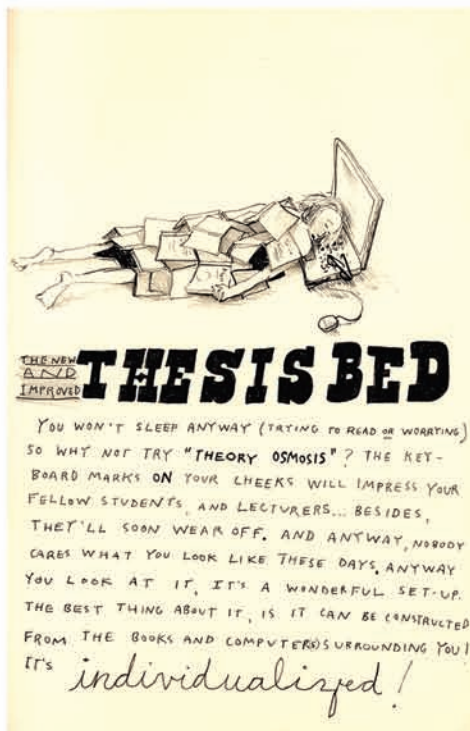 THE NEW
AND
IMPROVED
THESIS BED
YOU WON'T SLEEP ANYWAY (TRYING TO READ OR WORRYING)
SO WHY NOT TRY "THEORY OSMOSIS"? THE KEY-
BOARD MARKS ON YOUR CHEEKS WILL IMPRESS YOUR
FELLOW STUDENTS, AND LECTURERS... BESIDES,
THEY'LL SOON WEAR OFF. AND ANYWAY, NOBODY
CARES WHAT YOU LOOK LIKE THESE DAYS. ANYWAY
YOU LOOK AT IT, IT'S A WONDERFUL SET-UP.
THE BEST THING ABOUT IT, IS IT CAN BE CONSTRUCTED
FROM THE BOOKS AND COMPUTER(S) SURROUNDING YOU!
IT'S individualized!